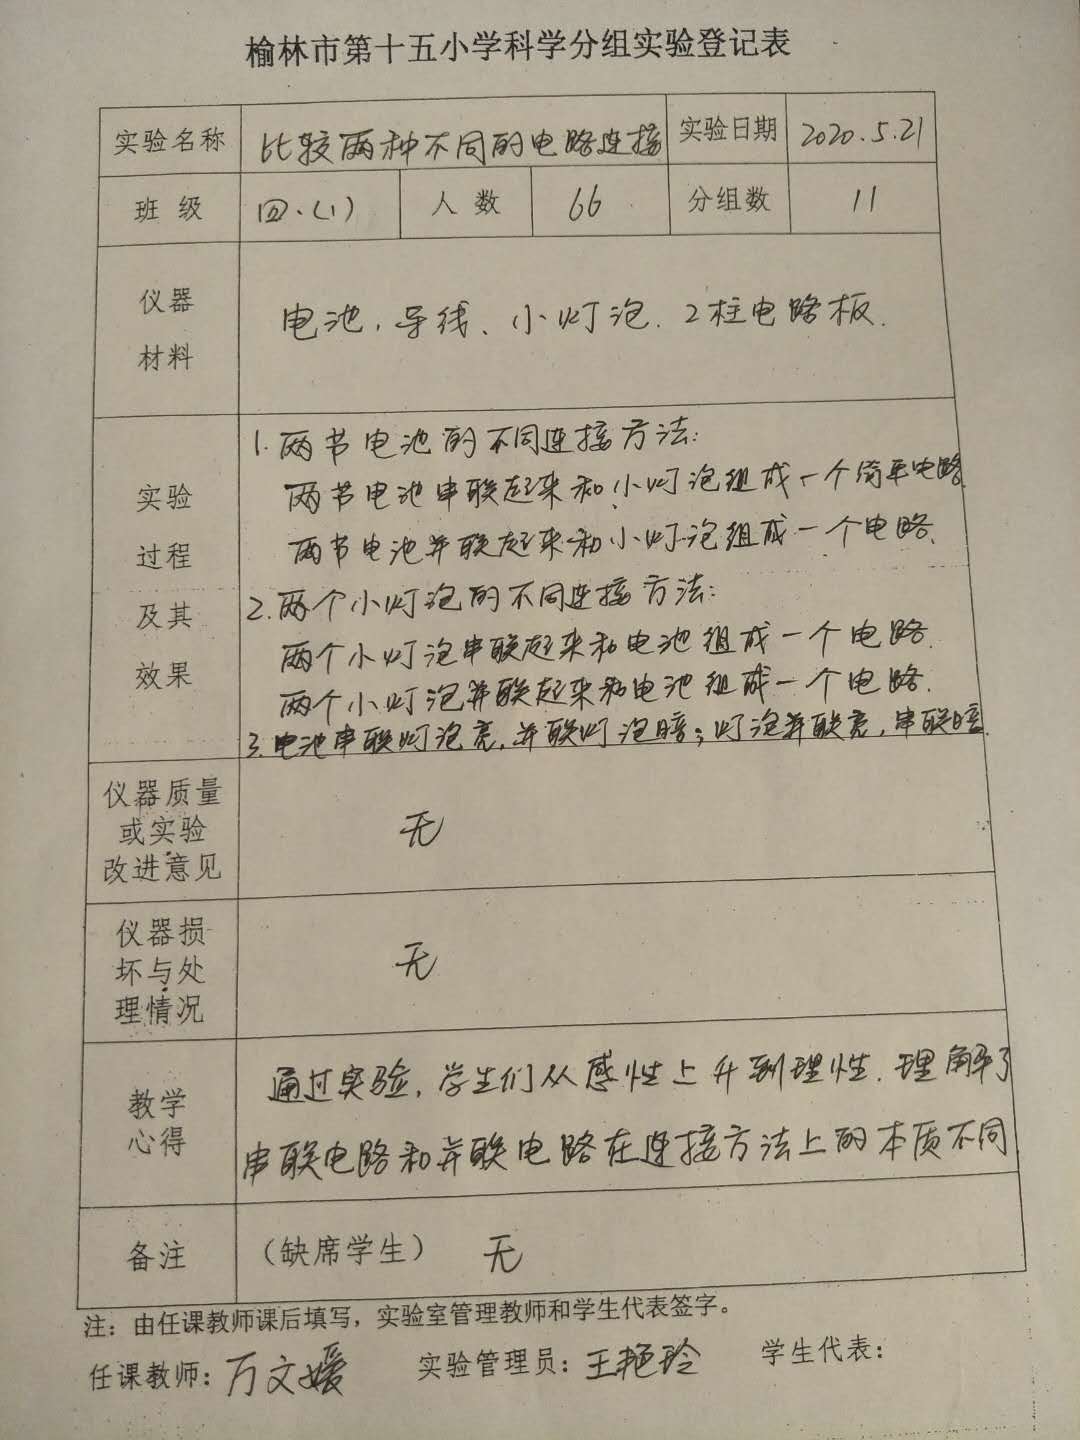 榆林市第十五小学科学分组实验登记表
实验名称 比较两种不同的电路连接 实验日期 2020.5.21
班 级 四.(1) 人 数 66 分组数 11
仪器
材料
电池、导线、小灯泡、2柱电路板.
实验
过程
及其
效果
1.两节电池的不同连接方法:
两节电池串联起来和小灯泡组成一个简单电路.
两节电池并联起来和小灯泡组成一个电路.
2.两个小灯泡的不同连接方法:
两个小灯泡串联起来和电池组成一个电路.
两个小灯泡并联起来和电池组成一个电路.
3.电池串联灯泡亮,并联灯泡暗;灯泡并联亮,串联暗.
仪器质量
或实验
改进意见
无
仪器损
坏与处
理情况
无
教学
心得
通过实验,学生们从感性上升到理性.理解了
串联电路和并联电路在连接方法上的本质不同
备注 (缺席学生) 无
注:由任课教师课后填写,实验室管理教师和学生代表签字。
任课教师:万文媛 实验管理员:王艳玲 学生代表: